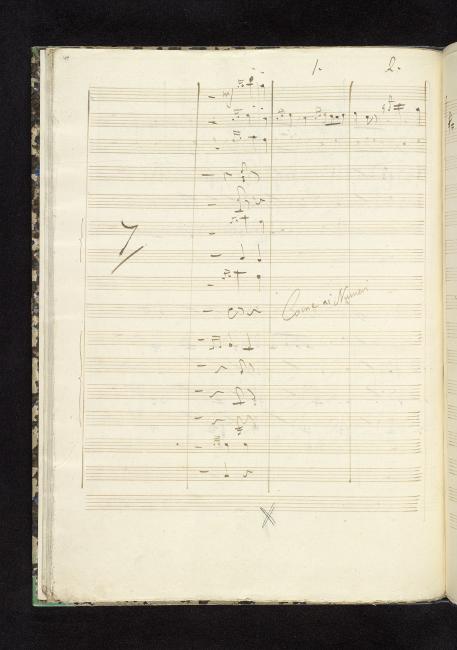 1. 2.
Come ai Numeri